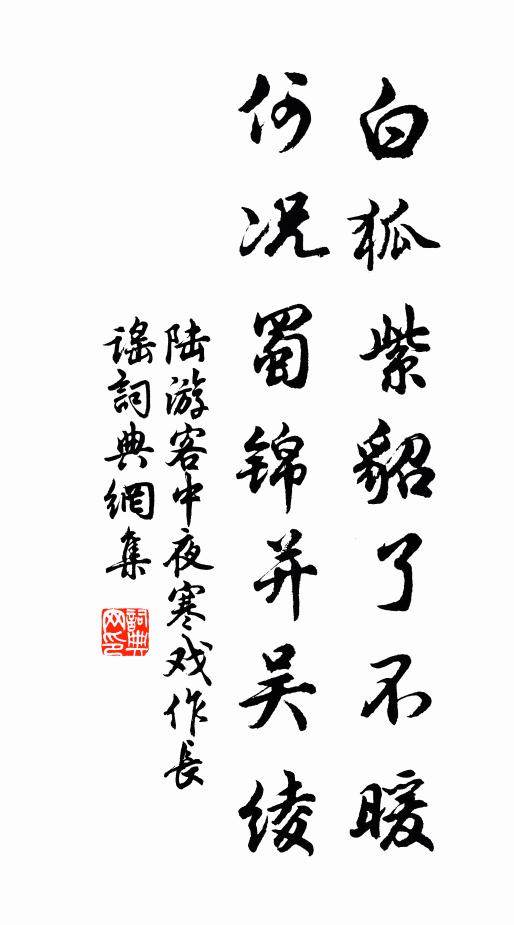 白狐紫貂了不暖
何况蜀锦并吴绫
陆游客中夜寒戏作长
谣詞典網集
詞典网印